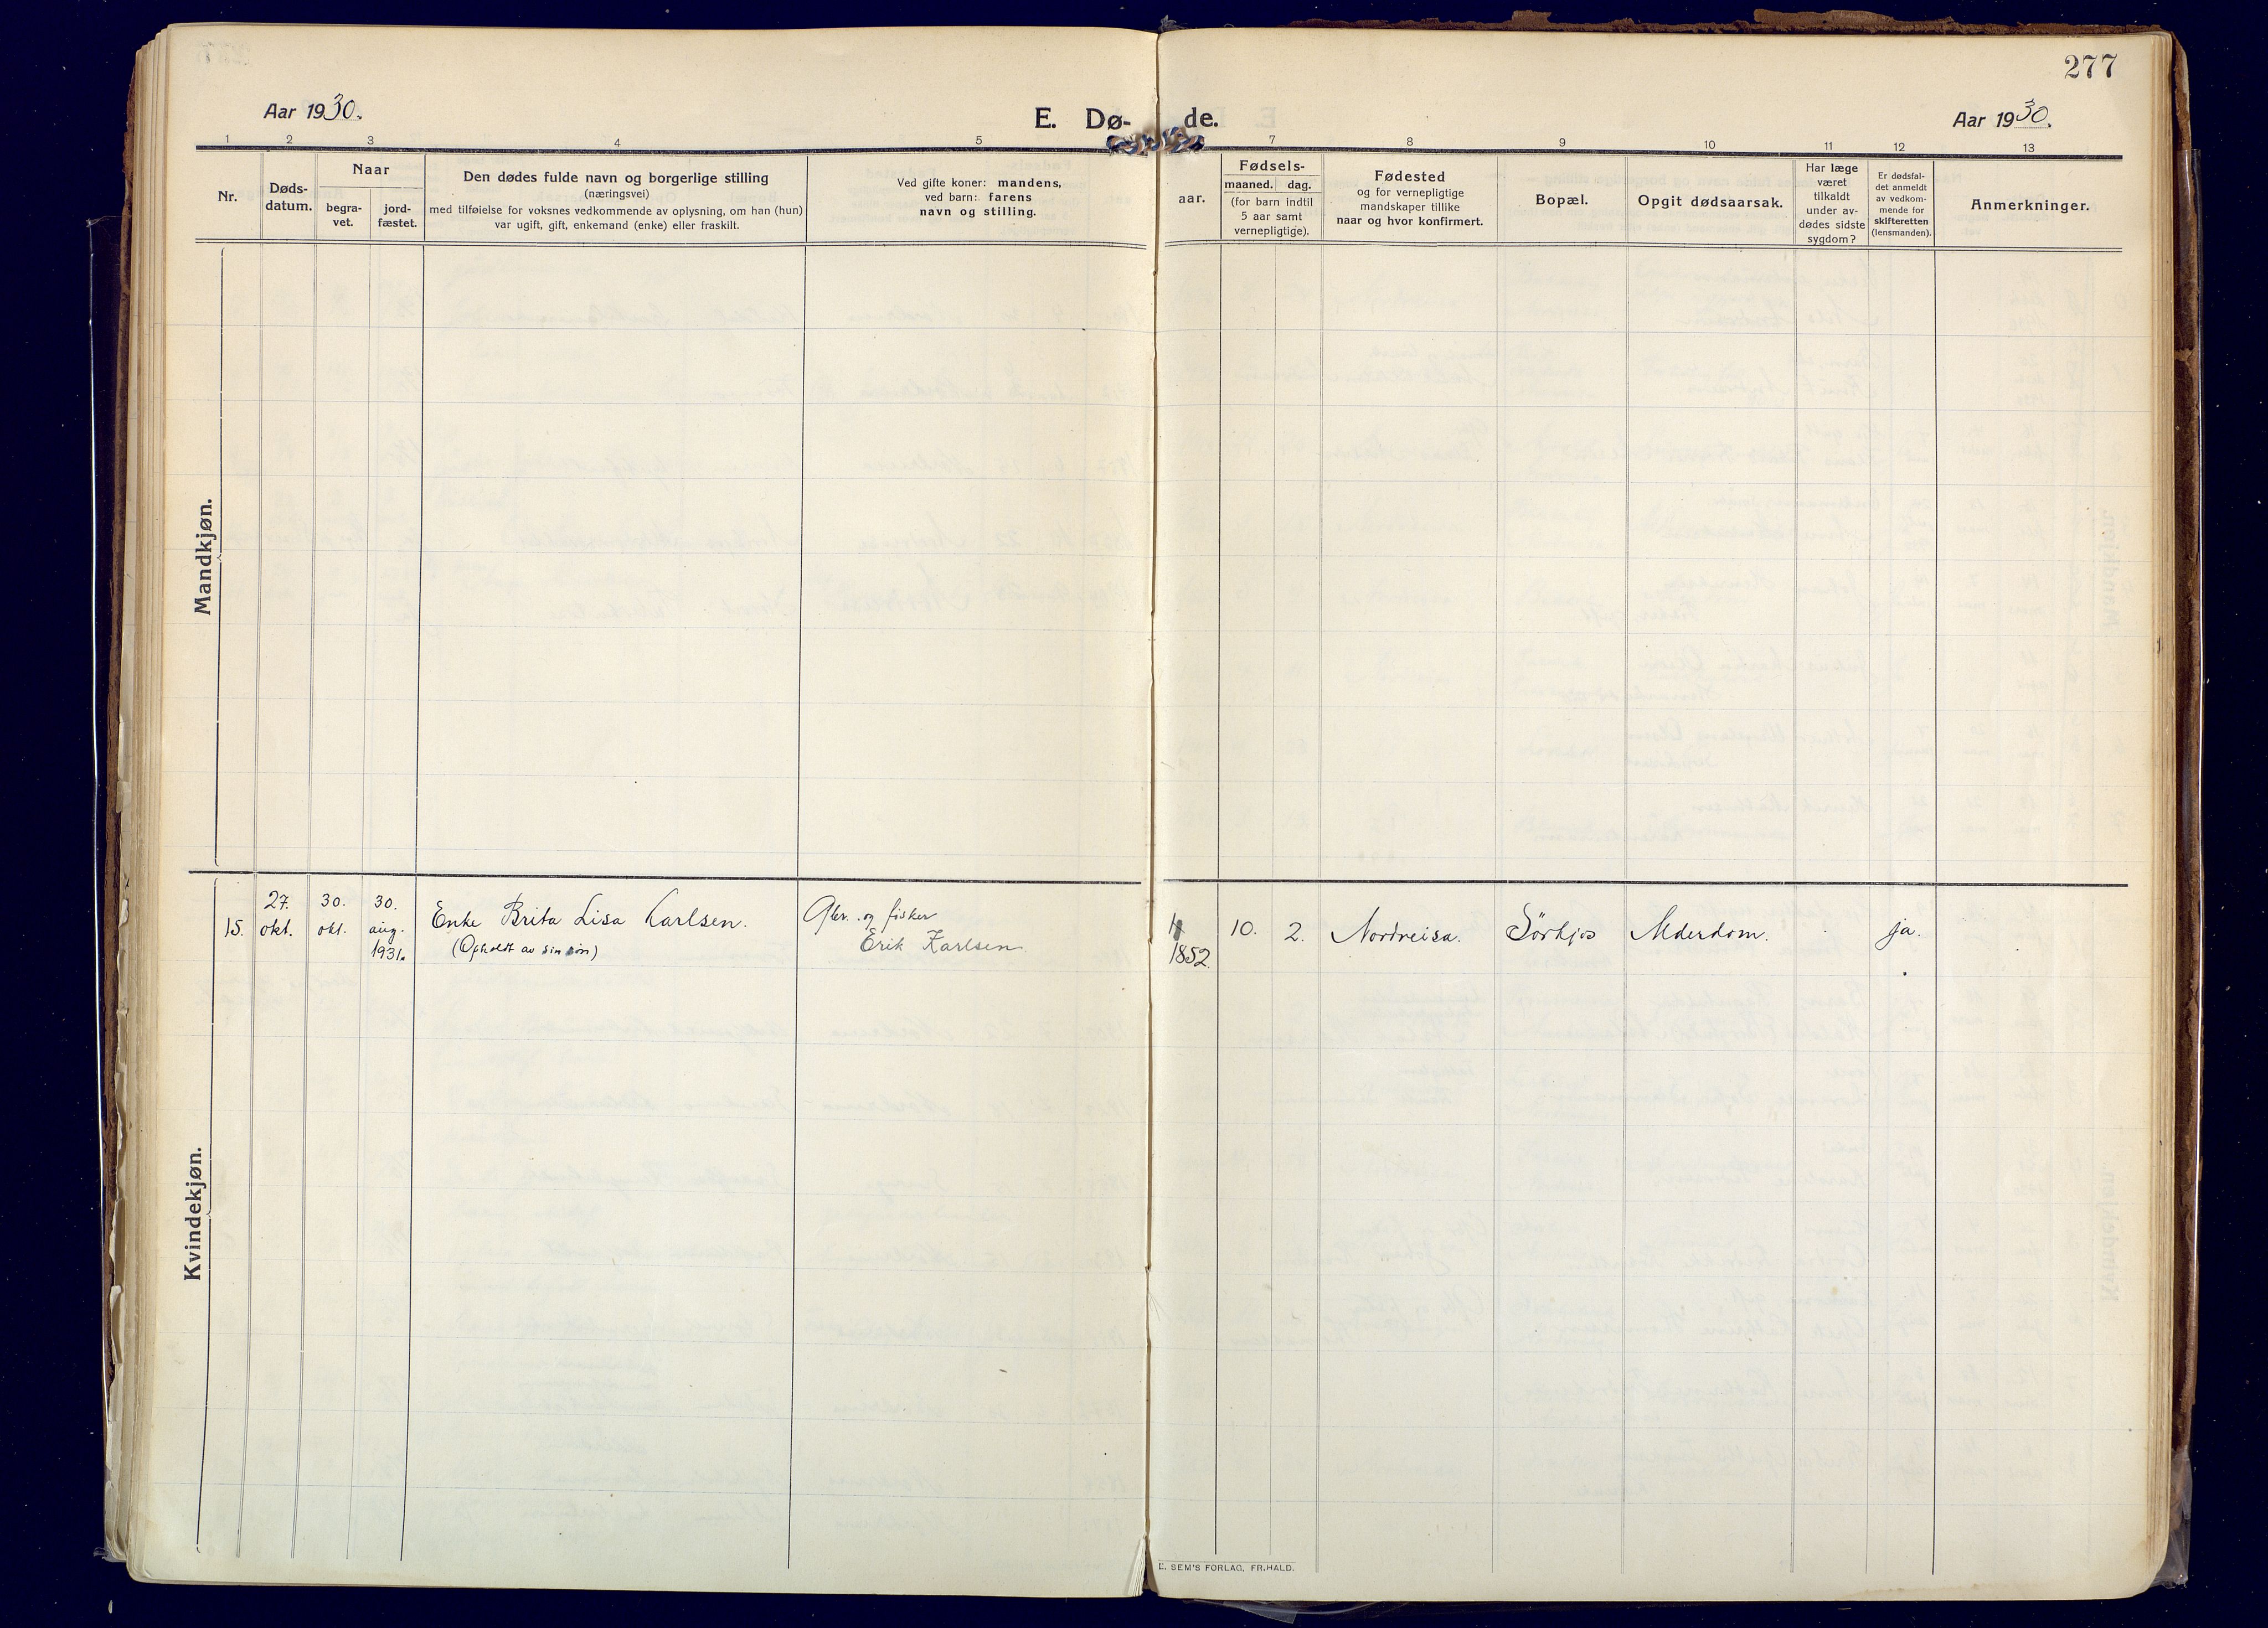 277
Aar 1930.
E. Dø- de.
Aar 1930.
1 2 3 4 5 7 8 9 10 11 12 13
Nr.
Døds-
datum.
Naar
begra-
vet.
jord-
fæstet.
Den dødes fulde navn og borgerlige stilling
(næringsvei)
med tilføielse for voksnes vedkommende av oplysning, om han (hun)
var ugift, gift, enkemand (enke) eller fraskilt.
Ved gifte koner: mandens,
ved barn: farens
navn og stilling.
aar.
Fødsels-
maaned. dag.
(for barn indtil
5 aar samt
vernepligtige).
Fødested
og for vernepligtige
mandskaper tillike
naar og hvor konfirmert.
Bopæl.
Opgit dødsaarsak.
Har læge
været
tilkaldt
under av-
dødes sidste
sygdom?
Er dødsfal-
det anmeldt
av vedkom-
mende for
skifteretten
(lensmanden).
Anmerkninger.
Mandkjøn.
Kvindekjøn.
15.
27.
okt.
30.
okt.
30.
aug.
1931.
Enke Brita Lisa Karlsen.
(Opholdt av sin søn)
Gbr. og fisker
Erik Karlsen
1852.
10.
2.
Nordreisa.
Sörkjos
Alderdom.
ja.
E. SEM'S FORLAG, FR.HALD.